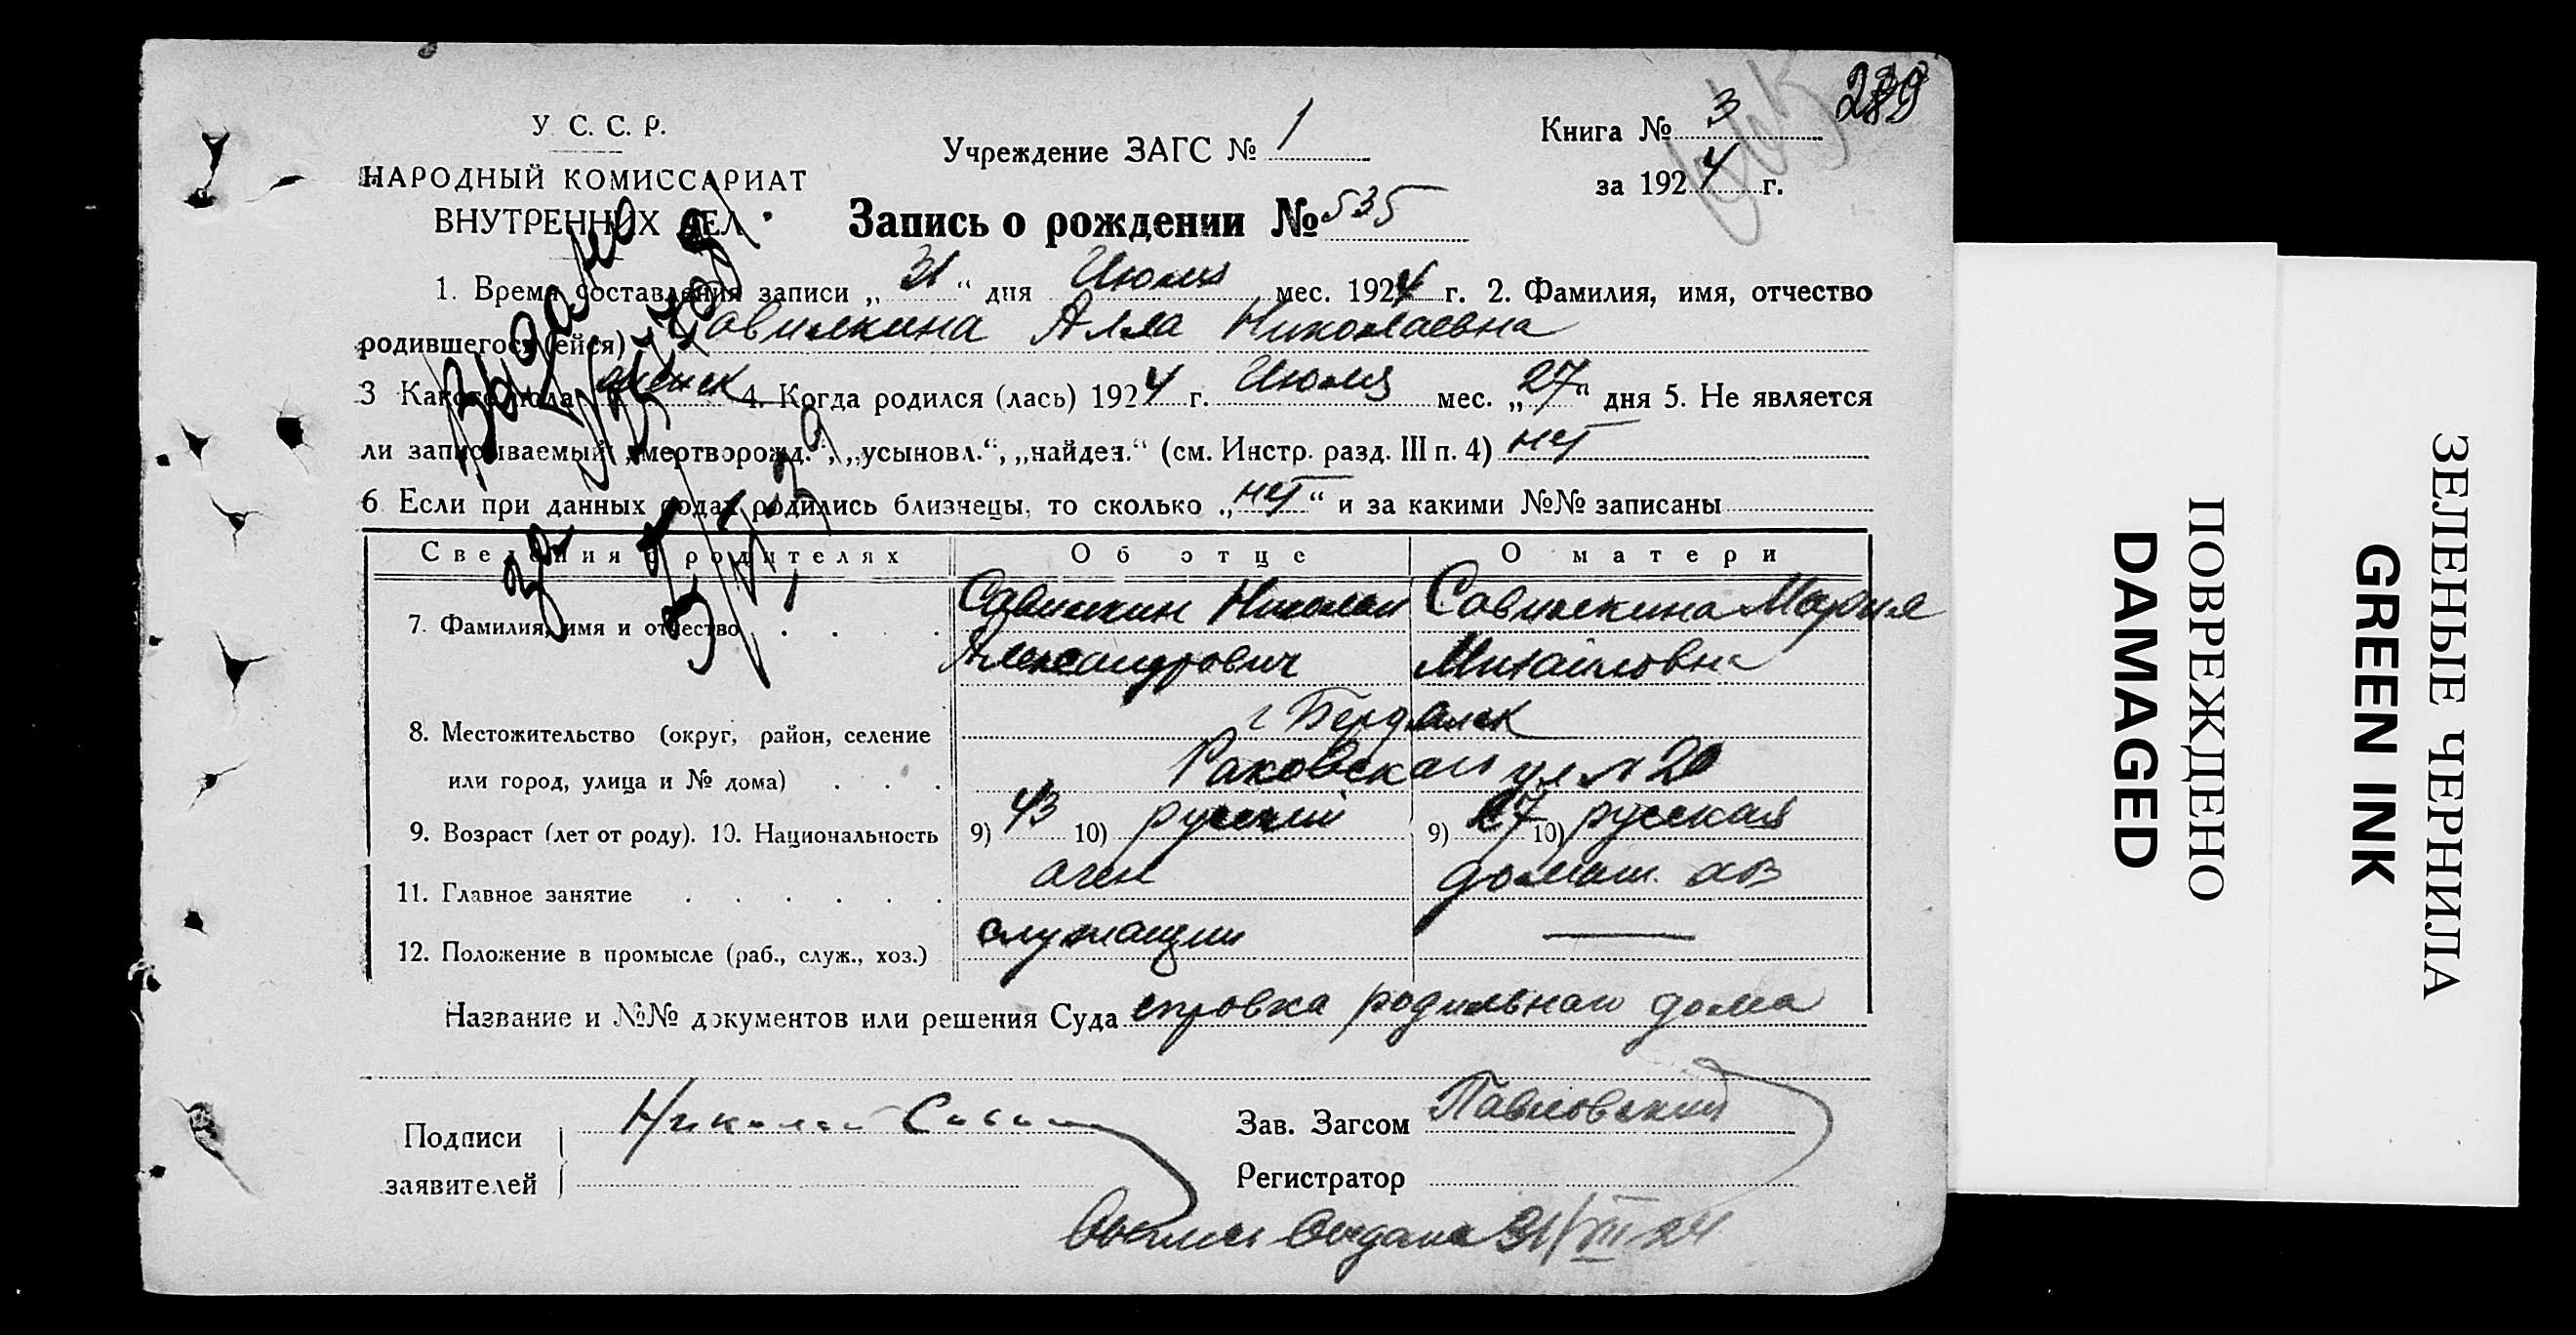 289
У. С. С. Р.
НАРОДНЫЙ КОМИССАРИАТ
ВНУТРЕННИХ ДЕЛ.
Учреждение ЗАГС № 1
Книга № 3
за 1924 г.
Запись о рождении № 535
1. Время составления записи „31“ дня Июля мес. 1924 г. 2. Фамилия, имя, отчество
родившегося (ейся) Савилкина Алла Николаевна
3 Какого пола женск 4. Когда родился (лась) 1924 г. Июля мес. „27“ дня 5. Не является
ли записываемый „мертворожд.“, „усыновл.“, „найден.“ (см. Инстр. разд. III п. 4) нет
6 Если при данных родах родились близнецы, то сколько „нет“ и за какими №№ записаны
Сведения о родителях Об отце О матери
7. Фамилия, имя и отчество Савилкин Николай Савилкина Мария
Александрович Михайловна
8. Местожительство (округ, район, селение г Бердянск
или город, улица и № дома) Раковская ул № 20
9. Возраст (лет от роду). 10. Национальность 9) 43 10) русский 9) 27 10) русская
11. Главное занятие домаш. хоз
12. Положение в промысле (раб., служ., хоз.) служащий —
Название и №№ документов или решения Суда справка родильнаго дома
Подписи Николай
заявителей
Зав. Загсом Павловский
Регистратор
Выдано
за №
выдана 31/VII 24
ПОВРЕЖДЕНО
DAMAGED
ЗЕЛЕНЫЕ ЧЕРНИЛА
GREEN INK